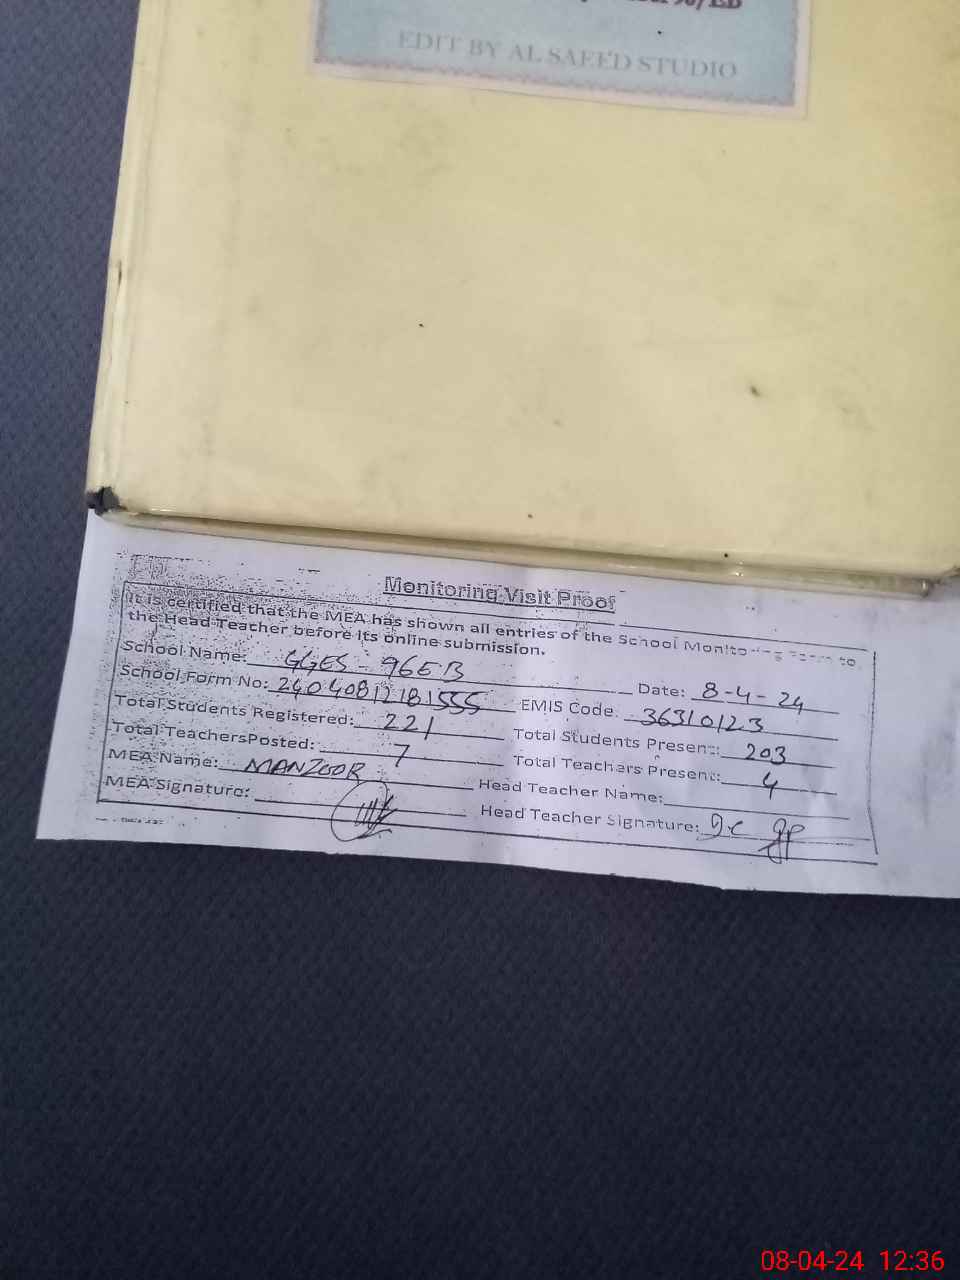 EDIT BY AL SAEED STUDIO
Monitoring Visit Proof
It is certified that the MEA has shown all entries of the School Monitoring Form to
the Head Teacher before its online submission.
School Name: GGES - 96EB Date: 8-4-24
School Form No: 24040812181555 EMIS Code: 36310123
Total Students Registered: 221 Total Students Present: 203
Total TeachersPosted: 7 Total Teachers Present: 4
MEA Name: MANZOOR Head Teacher Name:
MEA Signature: Head Teacher Signature:
08-04-24 12:36